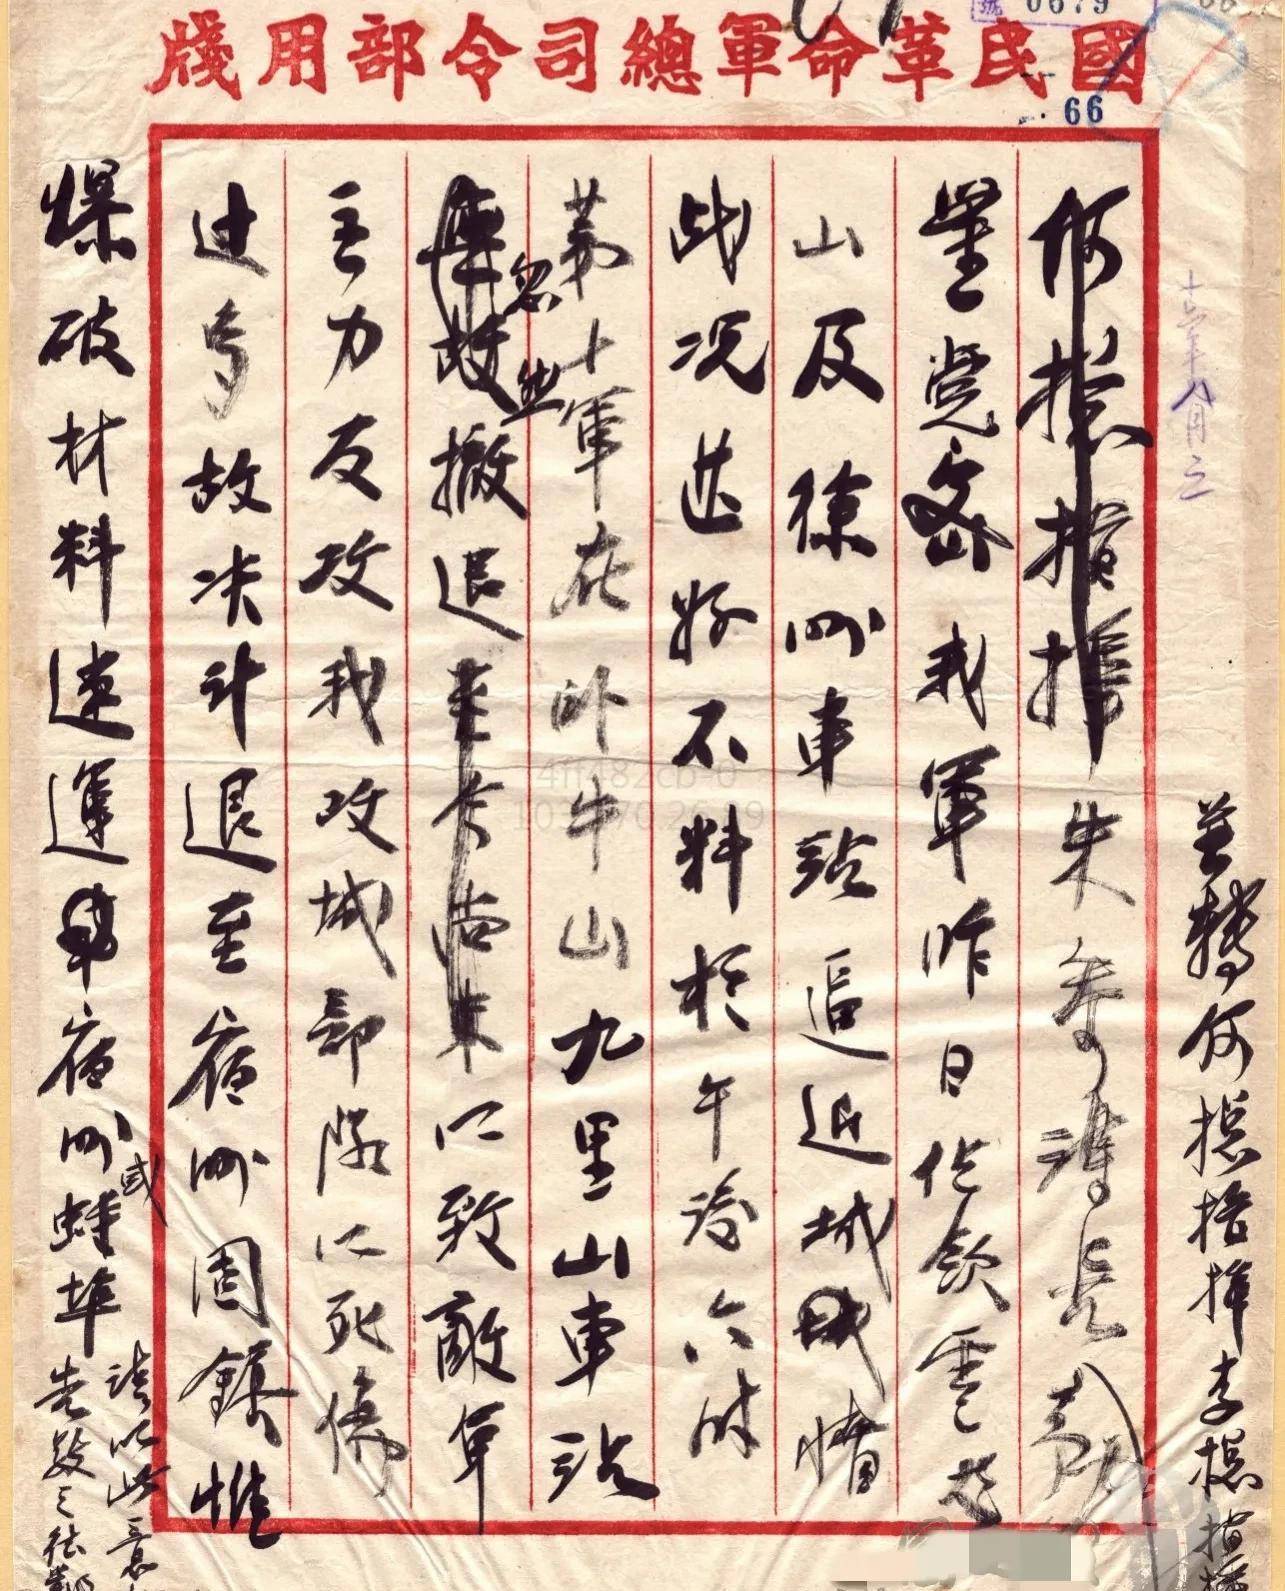 國民革命軍總司令部用牋
0679
66
十六年八月三
並轉何總指揮李總指
何總指揮朱參謀長勳
鑒黨密我軍昨日佔領雲龍
山及徐州車站迫近城牆
战况甚好不料於午後六时
第十軍在卧牛山九里山車站
忽然撤退以致敵軍
主力反攻我攻城部隊以死傷
过多故决計退至宿州固鎮惟
爆破材料速運宿州或蚌埠
請以此意
4ff482cb-0